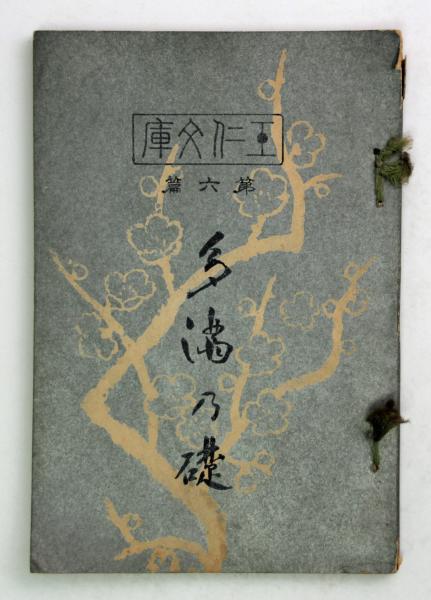 王仁文庫
第六篇
多満乃礎